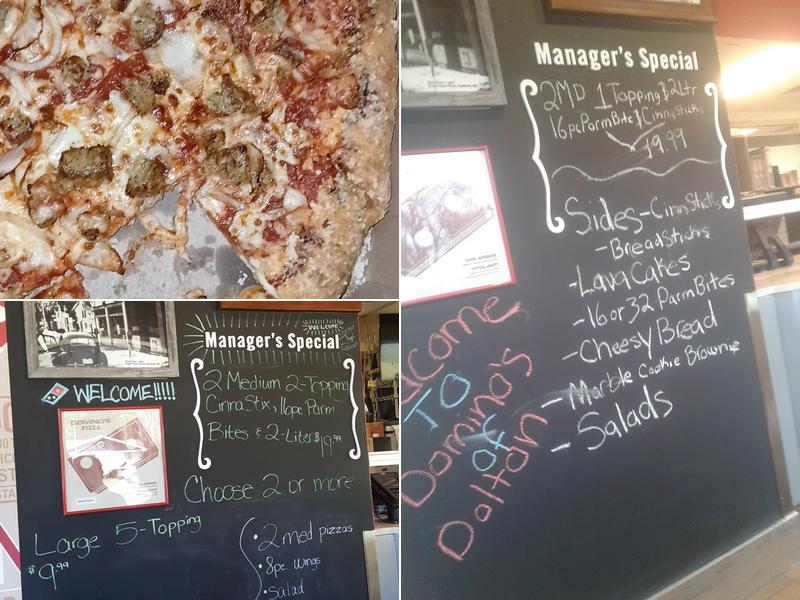 Manager's Special
2MD 1Topping & 2Ltr
16pc Parm Bite & Cinnysticks
19.99
Sides - CinnSticks
- BreadSticks
- LavaCakes
- 16 or 32 Parm Bites
- Cheesy Bread
- Marble Cookie Brownie
- Salads
Welcome
To
Domino's
of
Dalton
WELCOME
Manager's Special
2 Medium 2-Topping
CinnaStix, 16pc Parm
Bites & 2-Liter $19.99
WELCOME!!!!!
DOMINO'S
PIZZA
Choose 2 or more
Large 5-Topping
$9.99
• 2 med pizzas
• 8pc. wings
• Salad